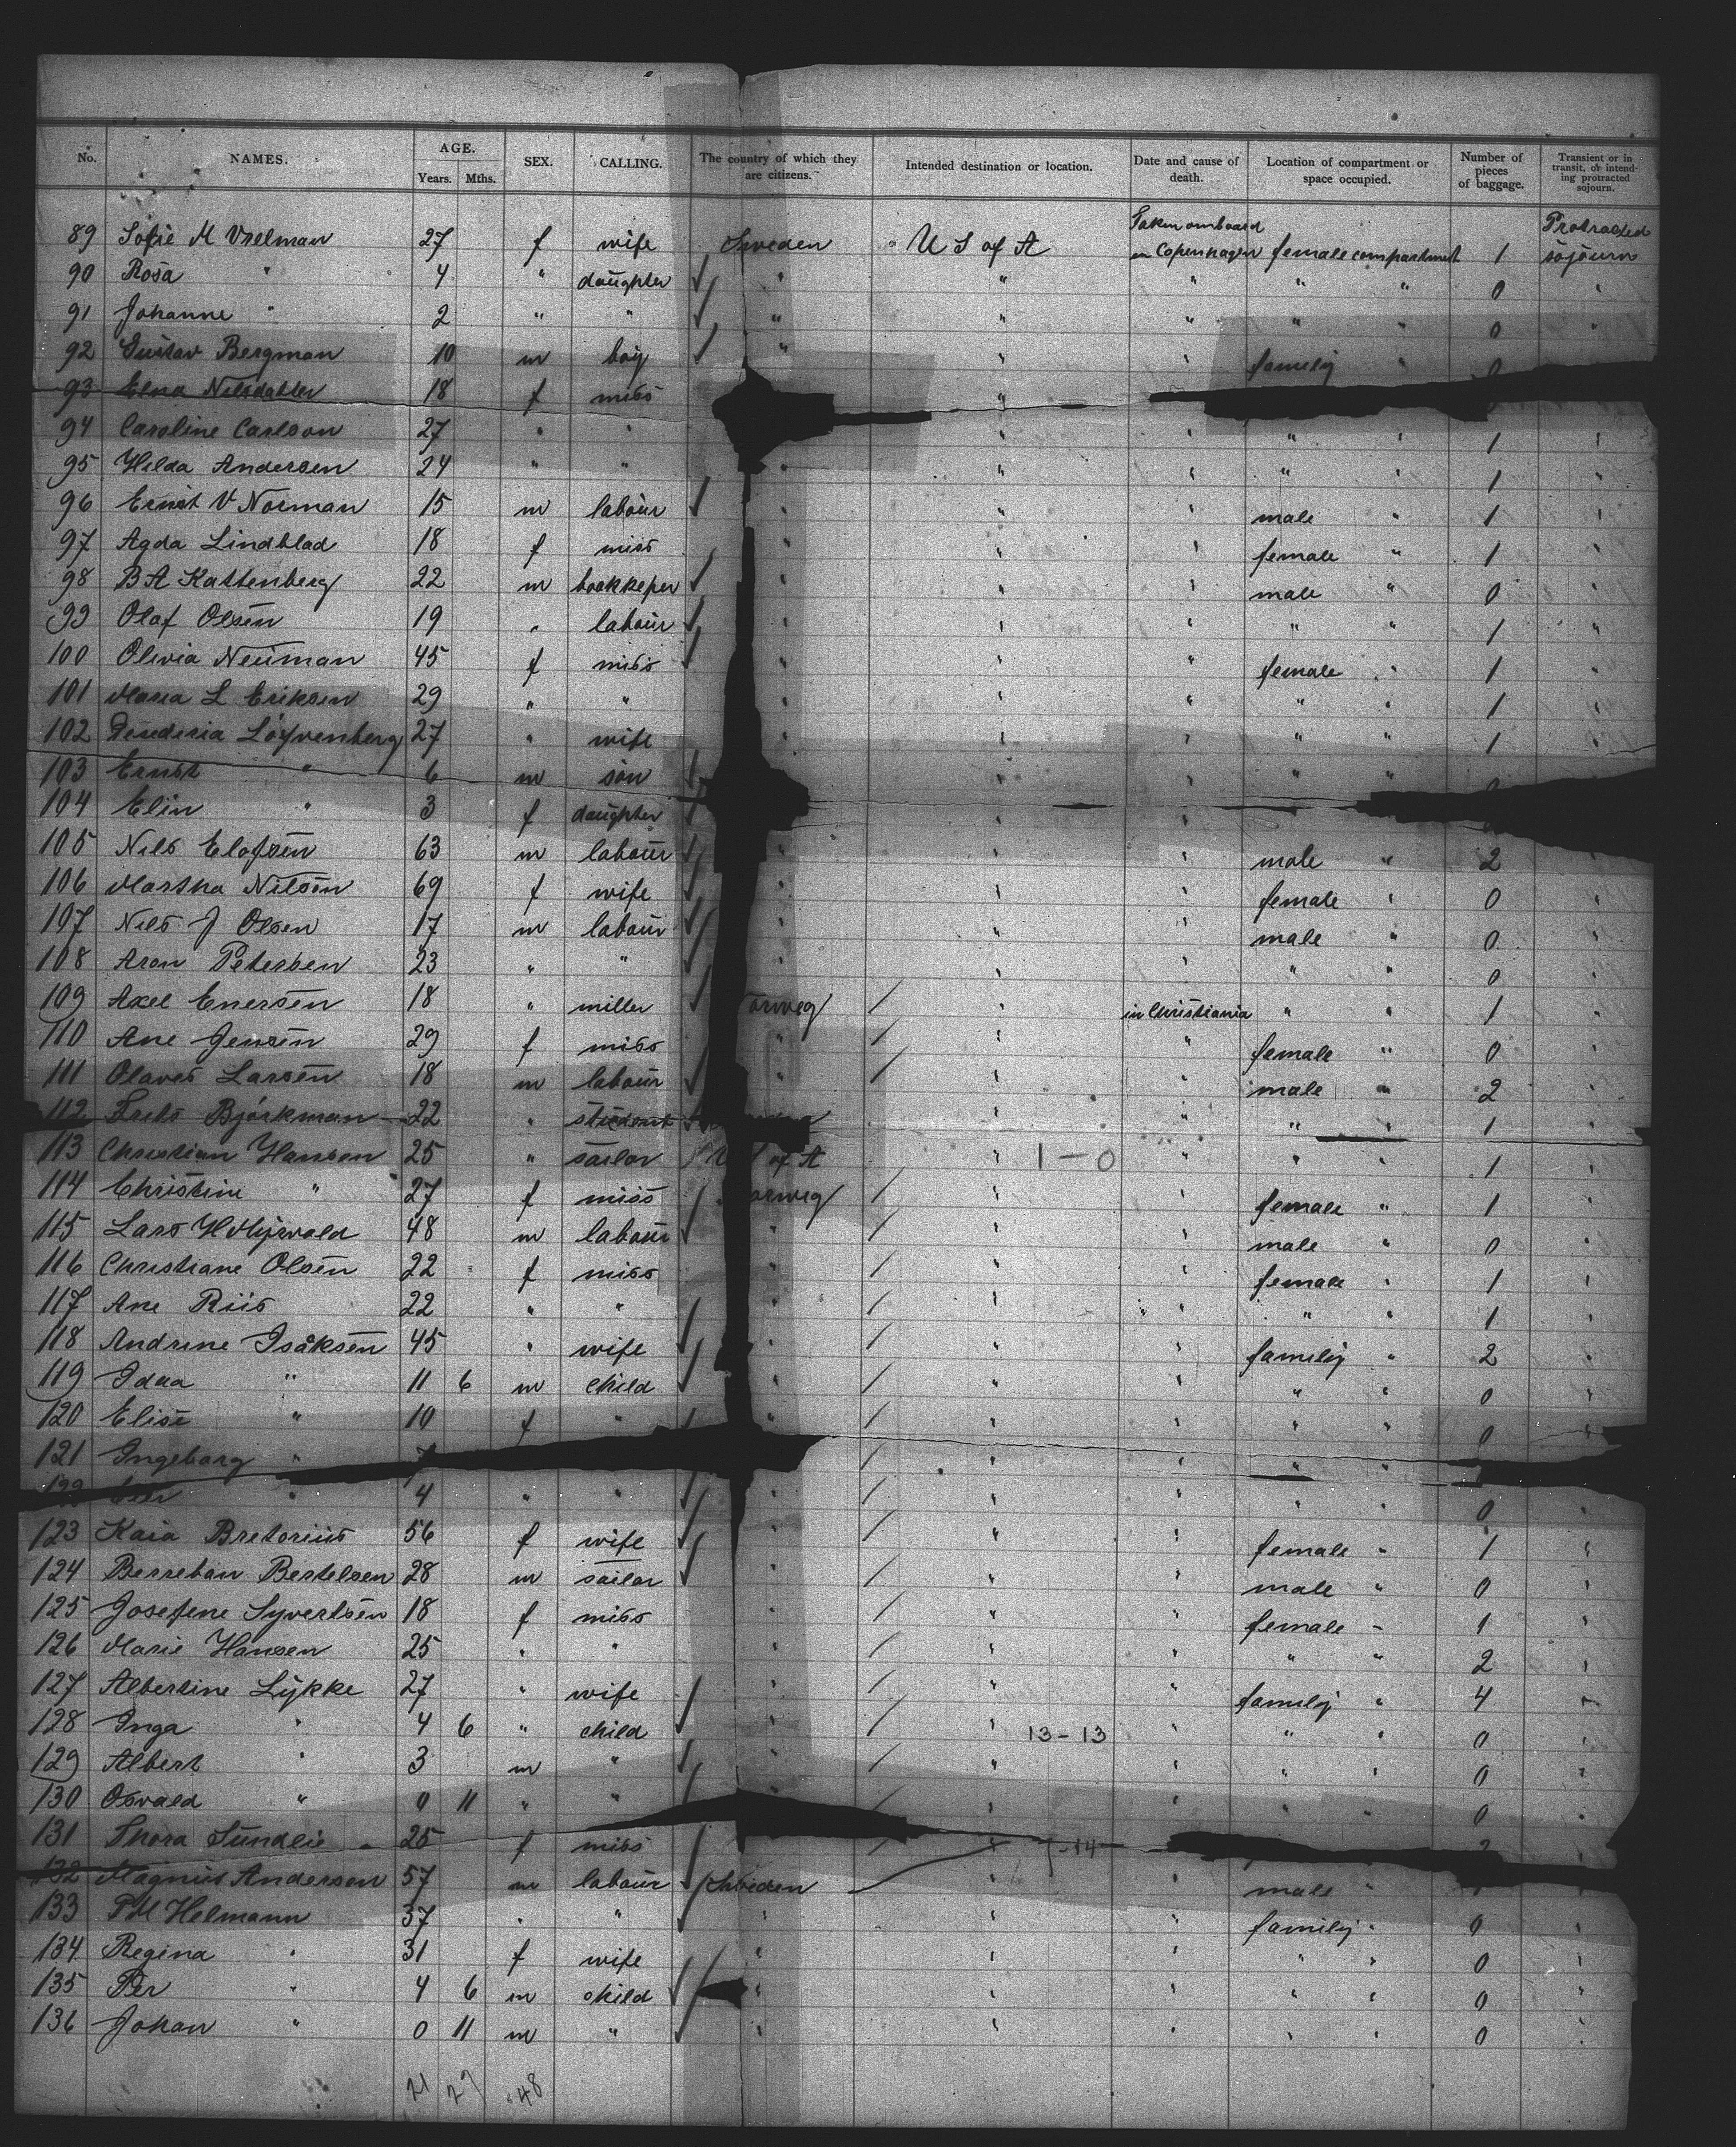 No. NAMES. AGE. Years. Mths. SEX. CALLING. The country of which they are citizens. Intended destination or location. Date and cause of death. Location of compartment or space occupied. Number of pieces of baggage. Transient or in transit, or intending protracted sojourn.
89 Sofie M Vrelman 27 f wife Sweden " U S of A Taken onboard in Copenhagen female compartment 1 Protracted sojourn
90 Rosa " 4 " daughter " " " " " 0 "
91 Johanne " 2 " " " " " " " 0 "
92 Gustav Bergman 10 m boy " " " family " "
93 Elna Nilsdatter 18 f miss "
94 Caroline Carlson 27 " " " " " " 1 "
95 Hilda Andersen 24 " " " " " " " 1 "
96 Ernst V Norman 15 m labour " " " male " 1 "
97 Agda Lindblad 18 f miss " " " female " 1 "
98 B A Kattenberg 22 m bookkeper " " " male " 0 "
99 Olaf Olsen 19 " labour " " " " " 1 "
100 Olivia Neuman 45 f miss " " " female " 1 "
101 Maria L Eriksen 29 " " " " " " " 1 "
102 Desideria 27 " wife " " " " " 1 "
103 Ernst " 6 m son " " " "
104 Elin " 3 f daughter " "
105 Nils Elofsen 63 m labour " " " male " 2 "
106 Martha Nilsen 69 f wife " " " female " 0 "
107 Nils J Olsen 17 m labour " " " male " 0 "
108 Aron Petersen 23 " " " " " " 0 "
109 Axel Enersen 18 " miller orweg / " in Christiania " " 1 "
110 Ane Jensen 29 f miss " / " " female " 0 "
111 Olaves Larsen 18 m labour " / " " male " 2 "
112 Frits Björkman 22 " student " " " " 1 "
113 Christian Hansen 25 " sailor U of A " 1-0 " " " 1 "
114 Christine " 27 f miss orweg / " " female " 1 "
115 Lars H 48 m labour " / " " male " 0 "
116 Christiane Olsen 22 f miss " / " " female " 1 "
117 Ane Riis 22 " " " / " " " " 1 "
118 Andrine Isaksen 45 " wife " / " " family " 2 "
119 Idaa " 11 6 m child " / " " " " 0 "
120 Elise " 10 f " " / " " " " 0 "
121 Ingeborg " / " " "
122 " 4 " " " / " " " " 0 "
123 Kaia Bretorius 56 f wife " / " " female " 1 "
124 Berreban Bertelsen 28 m sailor " / " " male " 0 "
125 Josefene Syvertsen 18 f miss " / " " female " 1 "
126 Marie Hansen 25 " " " / " " " " 2 "
127 Albertine Lykke 27 " wife " / " " family " 4 "
128 Inga " 4 6 " child " / " 13-13 " " " 0 "
129 Albert " 3 m " " / " " " " 0 "
130 Osvald " 0 11 " " " / " " " " 0 "
131 Thora Sundlie 25 f miss / -14
132 Magnus Andersen 57 m labour Schweden male "
133 P M Helmann 37 " " " " " family " 0 "
134 Regina " 31 f wife " " " " " 0 "
135 Per " 4 6 m child " " " " " 0 "
136 Johan " 0 11 m " " " " " " 0 "
21 27 48